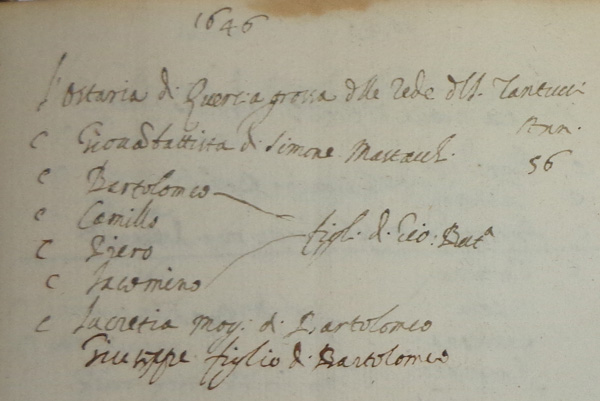 1646
L'Ostaria di Querciagrossa delle rede del S. Tantucci
Ann.
c Giovābattista di Simone Mastacch.
56
c Bartolomeo
c Camillo
figl. d. Gio: Batᵃ
c Piero
c Iacomino
c Lucretia mog: di Bartolomeo
Giuseppe figlio di Bartolomeo